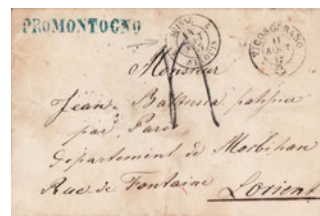 PROMONTOGNO
SUISSE
VICOSOPRANO
11
AOUT
57
Monsieur
Jean Battista patissier
par Paris
Departement de Morbihan
Rue de Fontaine Lorient